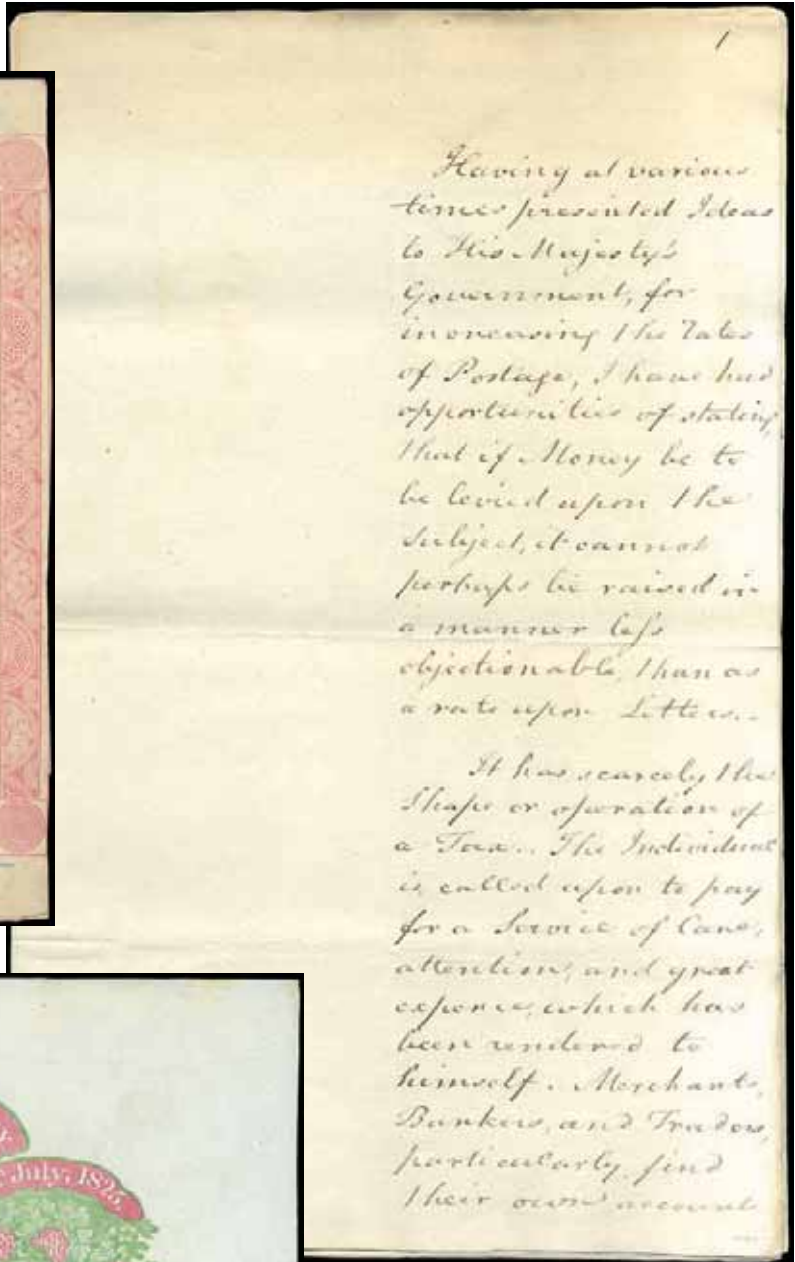 1
Having at various
times presented Ideas
to His Majesty's
Government, for
increasing the Rates
of Postage, I have had
opportunities of stating,
that if Money be to
be levied upon the
Subject, it cannot
perhaps be raised in
a manner less
objectionable, than as
a rate upon Letters.
It has scarcely the
Shape or operation of
a Tax. The Individual
is called upon to pay
for a Service of Care,
attention, and great
expence, which has
been rendered to
himself. Merchants,
Bankers, and Traders,
particularly, find
their own account
July, 1825.